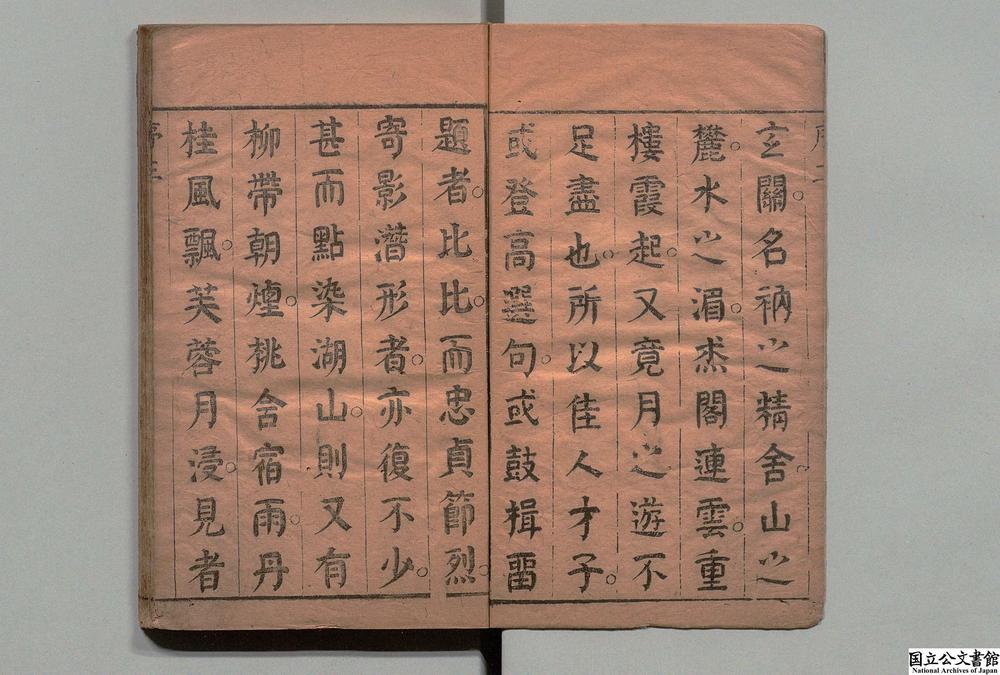 玄關。名衲之精舍。山之
麓。水之湄。杰閣連雲。重
樓霞起。又竟月之遊不
足盡也。所以佳人才子。
或登高選句。或鼓楫畱
題者。比比。而忠貞節烈。
寄影潛形者。亦復不少。
甚而點染湖山。則又有
柳帶朝煙。桃含宿雨。丹
桂風飄。芙蓉月浸。見者
国立公文書館
National Archives of Japan